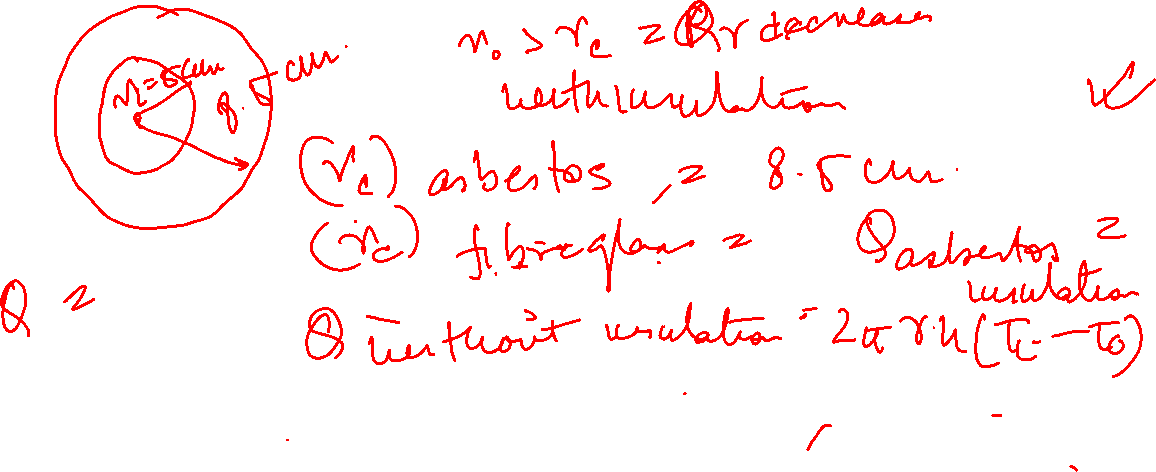 r₀ > r_c = Qr decreases
with insulation
r_i = 5 cm
8.5 cm.
(r_c) asbestos, = 8.5 cm.
(r_c) fibreglass =
Q asbestos =
insulation
Q =
Q without insulation = 2π r h (T_i - T_0)